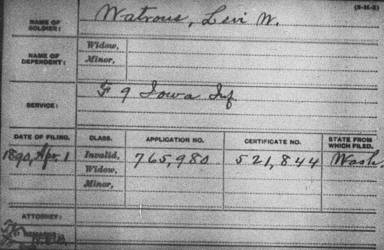 (3-14-2)
NAME OF SOLDIER: Watrous, Levi W.
NAME OF DEPENDENT: Widow,
Minor,
SERVICE: F 9 Iowa Inf
DATE OF FILING. CLASS. APPLICATION NO. CERTIFICATE NO. STATE FROM WHICH FILED.
1890, Apr. 1 Invalid, 765,980 521,844 Wash.
Widow,
Minor,
ATTORNEY: